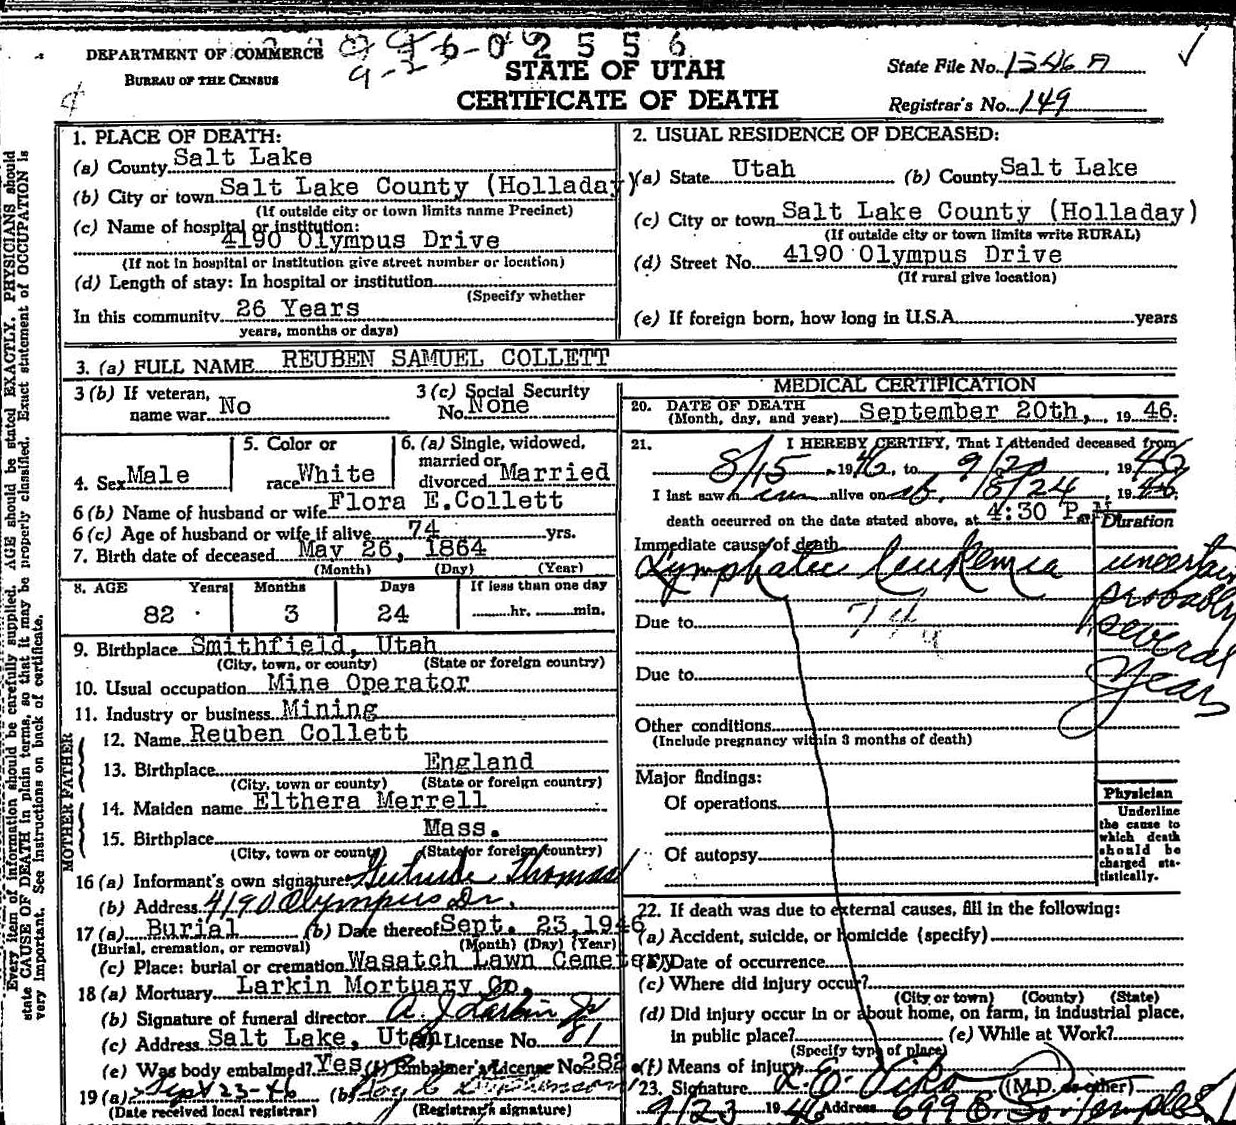 DEPARTMENT OF COMMERCE
BUREAU OF THE CENSUS
STATE OF UTAH
CERTIFICATE OF DEATH
State File No. 1546 A
Registrar's No. 149
Every item of information should be carefully supplied. AGE should be stated EXACTLY. PHYSICIANS should
state CAUSE OF DEATH in plain terms, so that it may be properly classified. Exact statement of OCCUPATION is
very important. See instructions on back of certificate.
1. PLACE OF DEATH:
(a) County Salt Lake
(b) City or town Salt Lake County (Holladay)
(If outside city or town limits name Precinct)
(c) Name of hospital or institution:
4190 Olympus Drive
(If not in hospital or institution give street number or location)
(d) Length of stay: In hospital or institution
(Specify whether
In this community 26 Years
years, months or days)
2. USUAL RESIDENCE OF DECEASED:
(a) State Utah (b) County Salt Lake
(c) City or town Salt Lake County (Holladay)
(If outside city or town limits write RURAL)
(d) Street No. 4190 Olympus Drive
(If rural give location)
(e) If foreign born, how long in U.S.A. years
3. (a) FULL NAME REUBEN SAMUEL COLLETT
3 (b) If veteran,
name war No
3 (c) Social Security
No. None
4. Sex Male
5. Color or
race White
6. (a) Single, widowed,
married or
divorced Married
6 (b) Name of husband or wife Flora E.Collett
6 (c) Age of husband or wife if alive 74 yrs.
7. Birth date of deceased May 26, 1864
(Month) (Day) (Year)
8. AGE Years Months Days If less than one day
82 3 24 hr. min.
9. Birthplace Smithfield, Utah
(City, town, or county) (State or foreign country)
10. Usual occupation Mine Operator
11. Industry or business Mining
FATHER
12. Name Reuben Collett
13. Birthplace England
(City, town or county) (State or foreign country)
MOTHER
14. Maiden name Elthera Merrell
15. Birthplace Mass.
(City, town or county) (State or foreign country)
16 (a) Informant's own signature Gertrude Thomas
(b) Address 4190 Olympus Dr.
17 (a) Burial (b) Date thereof Sept. 23,1946
(Burial, cremation, or removal) (Month) (Day) (Year)
(c) Place: burial or cremation Wasatch Lawn Cemetery
18 (a) Mortuary Larkin Mortuary Co.
(b) Signature of funeral director A. J. Larkin Jr
(c) Address Salt Lake, Utah (d) License No. 81
(e) Was body embalmed? Yes (f) Embalmer's License No. 282
19 (a) Sept 23-46 (b)
(Date received local registrar) (Registrar's signature)
MEDICAL CERTIFICATION
20. DATE OF DEATH
(Month, day, and year) September 20th, 19 46.
21. I HEREBY CERTIFY, That I attended deceased from
8/15 19 46, to 9/20, 19 46
I last saw him alive on 8/24, 19 46.
death occurred on the date stated above, at 4:30 P.M.
Duration
Immediate cause of death
Lymphatic Leukemia uncertain
probably
several
years
Due to 74a
Due to
Other conditions
(Include pregnancy within 3 months of death)
Major findings:
Of operations
Of autopsy
Physician
Underline
the cause to
which death
should be
charged sta-
tistically.
22. If death was due to external causes, fill in the following:
(a) Accident, suicide, or homicide (specify)
(b) Date of occurrence
(c) Where did injury occur?
(City or town) (County) (State)
(d) Did injury occur in or about home, on farm, in industrial place,
in public place? (e) While at Work?
(Specify type of place)
(f) Means of injury
23. Signature (M.D. or other)
9/23 1946 Address 699 E. So. Temple